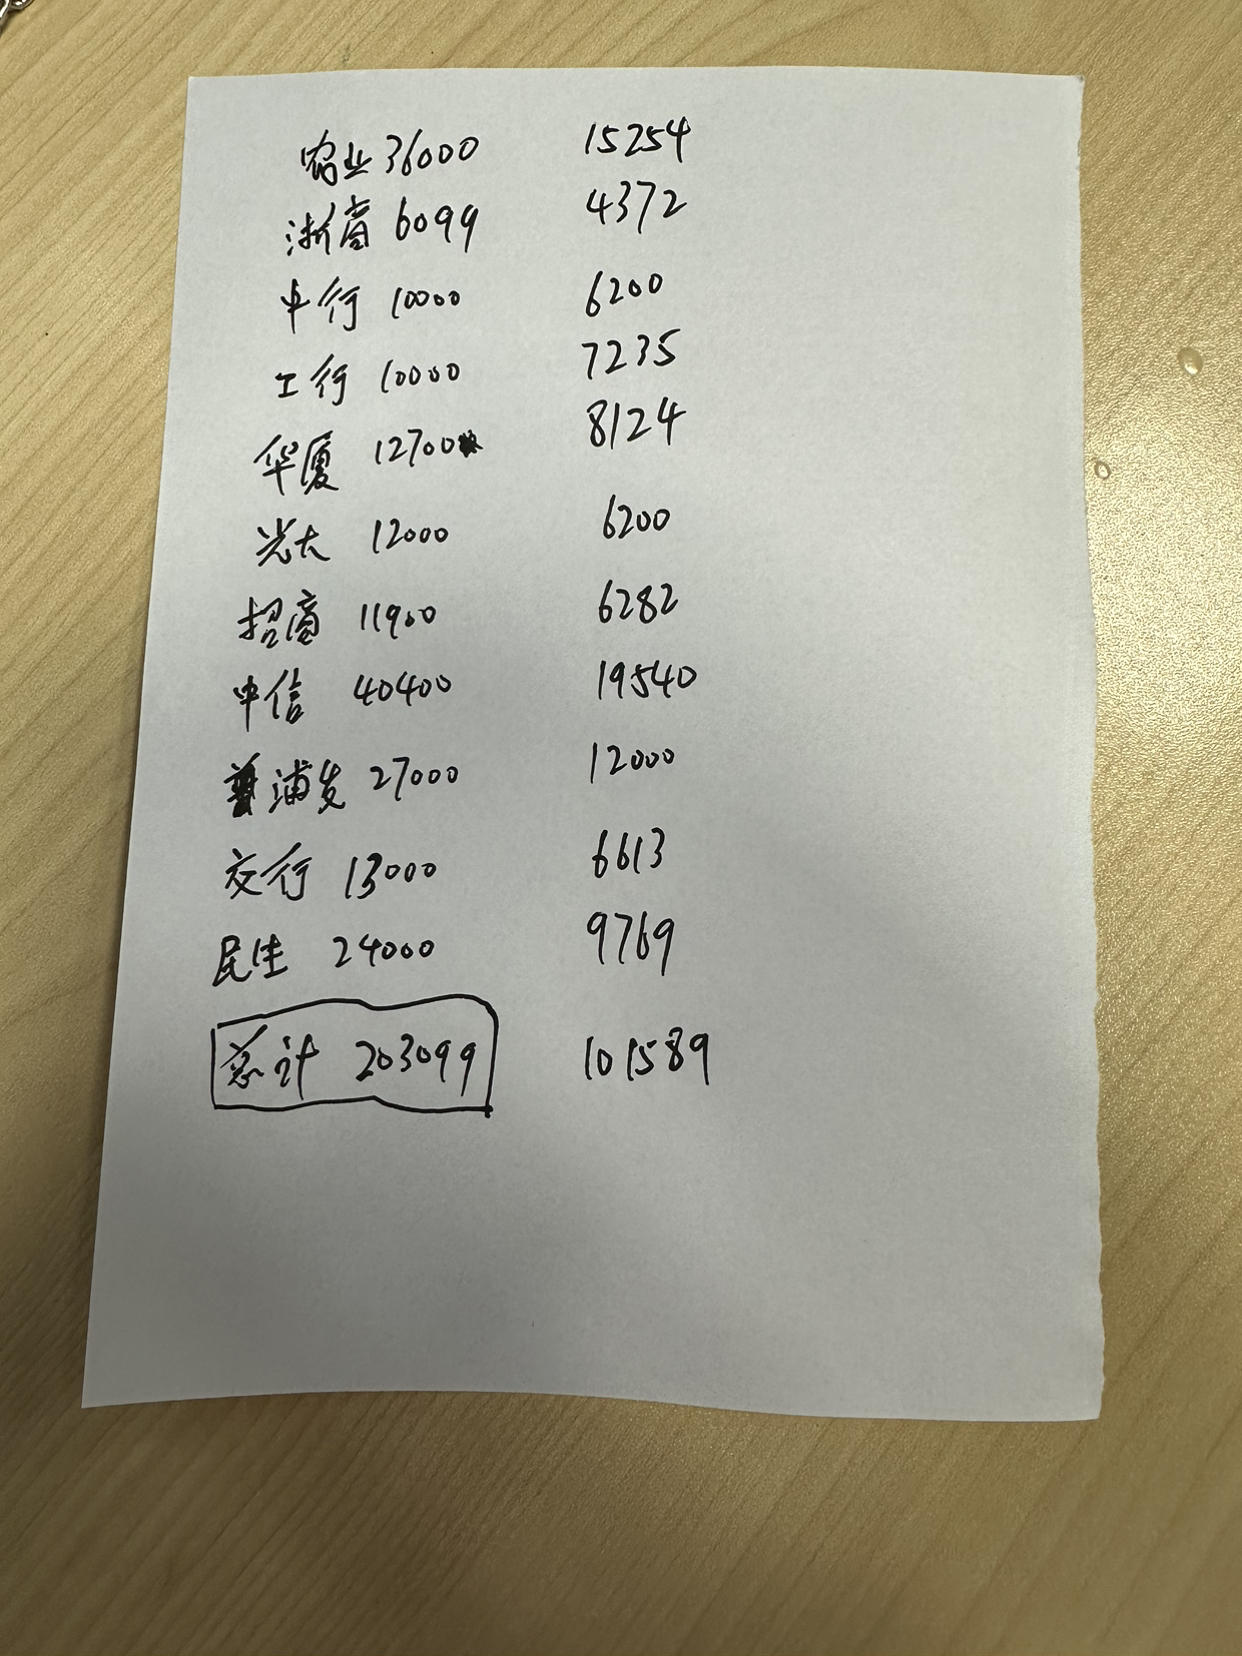 农业 36000 15254
浙商 6099 4372
中行 10000 6200
工行 10000 7235
华厦 12700 8124
光大 12000 6200
招商 11900 6282
中信 40400 19540
浦发 27000 12000
交行 13000 6613
民生 24000 9769
总计 203099 101589